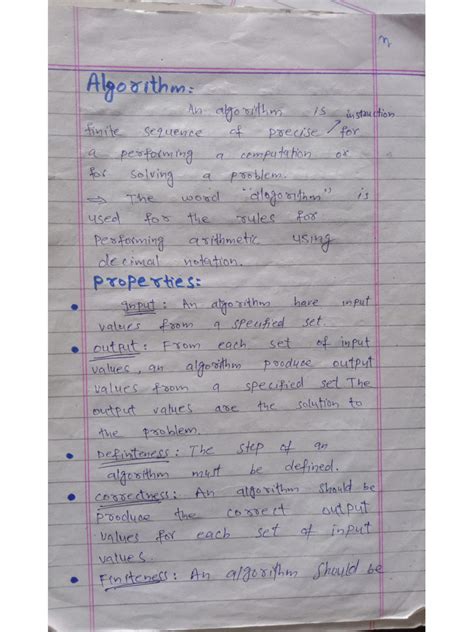 Algorithm:
An algorithm is instruction
finite sequence of precise for
a performing a computation or
for solving a problem.
→ The word "alogorithm" is
used for the rules for
performing arithmetic using
decimal notation.
Properties:
• Input: An algorithm have input
values from a specified set.
• output: From each set of input
values, an algorithm produce output
values from a specified set The
output values are the solution to
the problem.
• Definteness: The step of an
algorithm must be defined.
• correctness: An algorithm should be
produce the correct output
values for each set of input
values.
• Finiteness: An algorithm should be